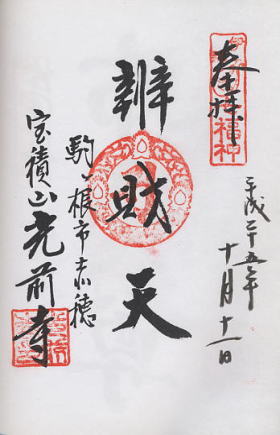 奉拝
平成二十五年
十月十一日
辨財天
駒ヶ根市赤穂
宝積山光前寺